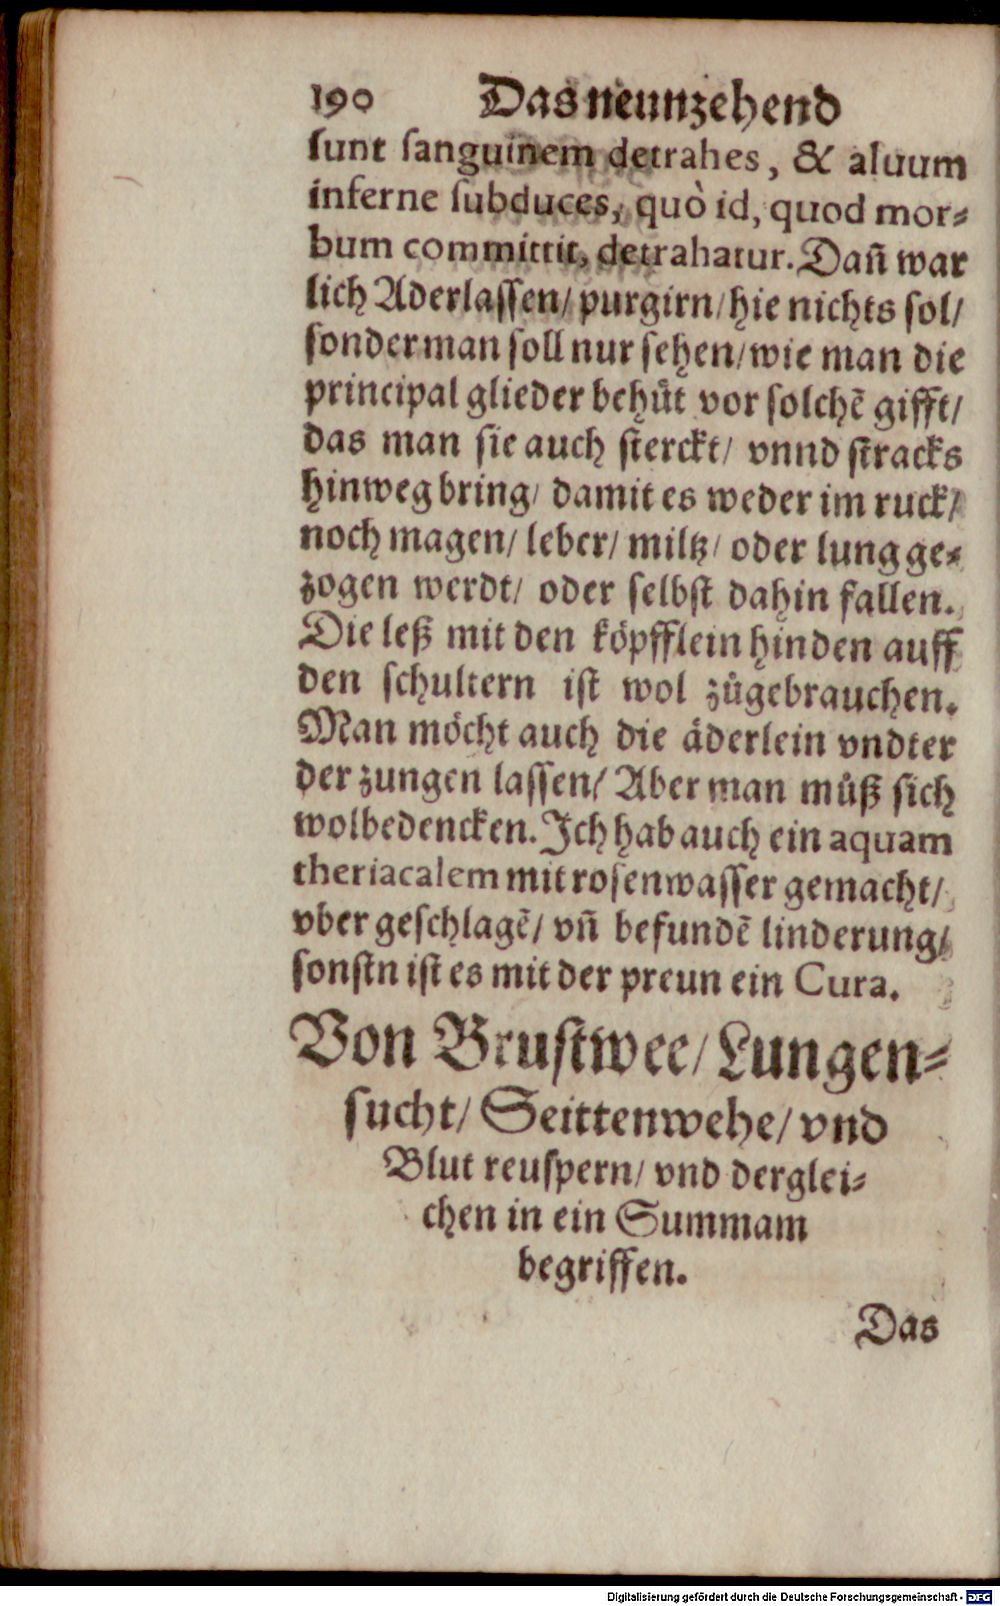 190 Das neunzehend
sunt sanguinem detrahes, & aluum
inferne subduces, quò id, quod mor⸗
bum committit, detrahatur. Dañ war
lich Aderlassen/ purgirn/ hie nichts sol/
sonder man soll nur sehen/ wie man die
principal glieder behůt vor solchẽ gifft/
das man sie auch sterckt/ vnnd stracks
hinweg bring/ damit es weder im ruck/
noch magen/ leber/ miltz/ oder lung ge⸗
zogen werdt/ oder selbst dahin fallen.
Die leß mit den köpfflein hinden auff
den schultern ist wol zůgebrauchen.
Man möcht auch die äderlein vndter
der zungen lassen/ Aber man můß sich
wolbedencken. Ich hab auch ein aquam
theriacalem mit rosenwasser gemacht/
vber geschlagẽ/ vñ befundẽ linderung/
sonstn ist es mit der preun ein Cura.
Von Brustwee/ Lungen⸗
sucht/ Seittenwehe/ vnd
Blut reuspern/ vnd derglei⸗
chen in ein Summam
begriffen.
Das
Digitalisierung gefördert durch die Deutsche Forschungsgemeinschaft - DFG